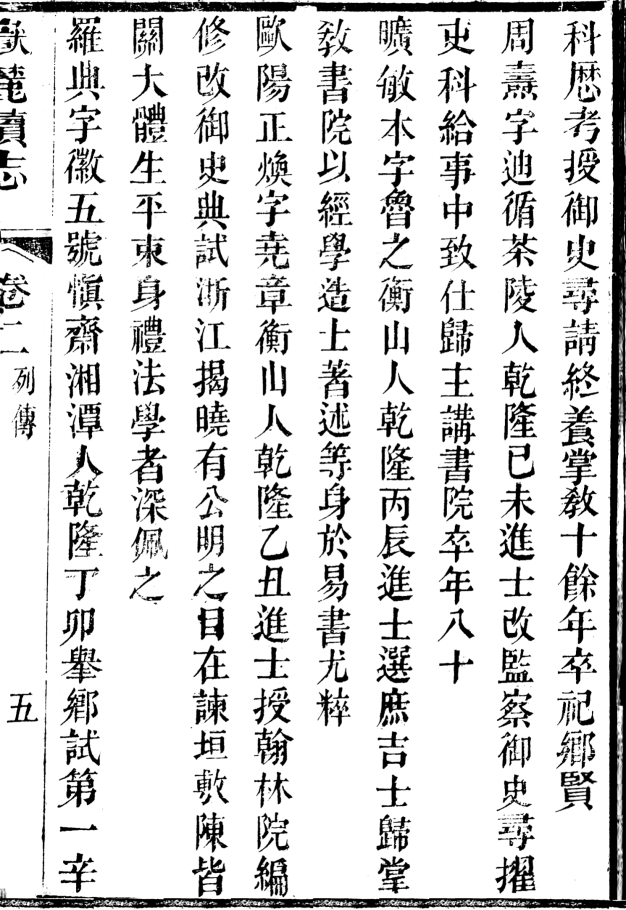 科歷考授御史尋請終養掌敎十餘年卒祀鄉賢
周燾字迪循茶陵人乾隆己未進士改監察御史尋擢
吏科給事中致仕歸主講書院卒年八十
曠敏本字魯之衡山人乾隆丙辰進士選庶吉士歸掌
敎書院以經學造士著述等身於易書尤粹
歐陽正煥字尭章衡山人乾隆乙丑進士授翰林院編
修改御史典試浙江揭曉有公明之目在諫垣敷陳皆
關大體生平束身禮法學者深佩之
羅典字徽五號愼齋湘潭人乾隆丁卯舉鄉試第一辛
嶽麓續志
卷二
列傳
五